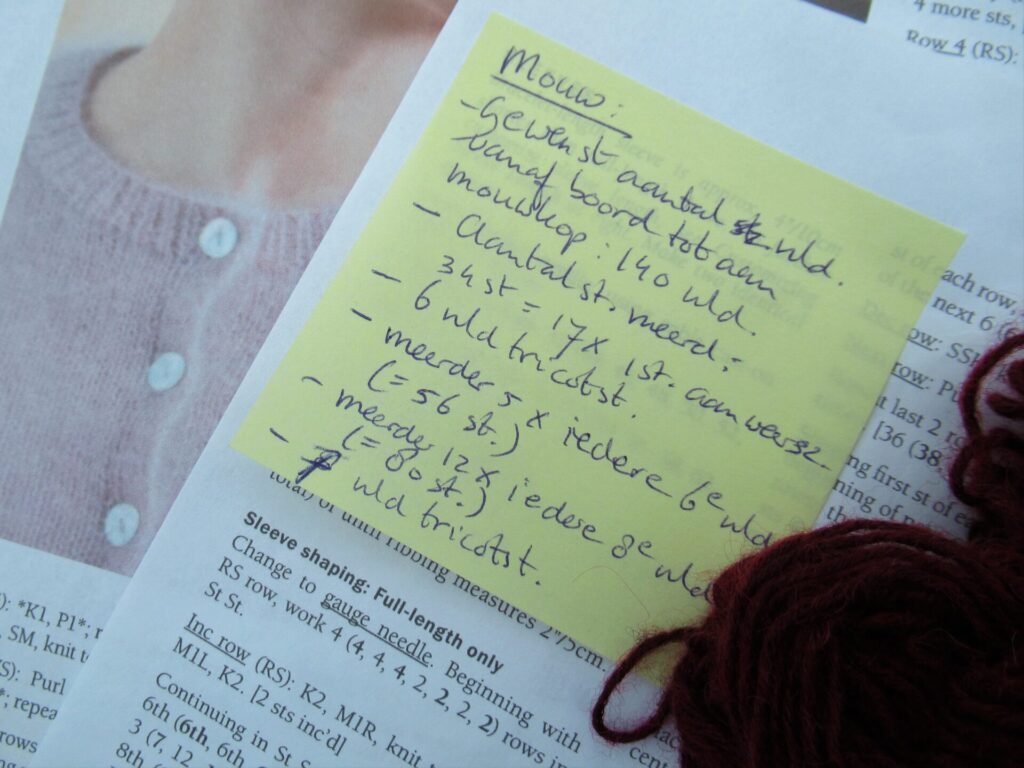 4 more sts,
Row 4 (RS):
Mouw:
- Gewenst aantal nld.
vanaf boord tot aan
mouwkop: 140 nld.
- Aantal st. meerd.:
34 st = 17x 1 st. aan weersz.
- 6 nld tricotst.
- meerder 5x iedere 6e nld
(= 56 st.)
- meerder 12x iedere 8e nld
(= 80 st.)
- nld tricotst.
st of each row,
next 6 (
row: SS
row: Pu
t last 2 ro
[36 (38,
ng first st of ea
total) or until ribbing measures 2"/5cm.
Sleeve shaping: Full-length only
Change to gauge needle. Beginning with
RS row, work 4 (4, 4, 4, 2, 2, 2, 2) rows in
St St.
Inc row (RS): K2, M1R, knit
M1L, K2. [2 sts inc'd]
Continuing in St S
6th (6th, 6th,
3 (7, 12,
8th,
): *K1, P1*; r
, SM, knit t
S): Purl
*; repea
rows